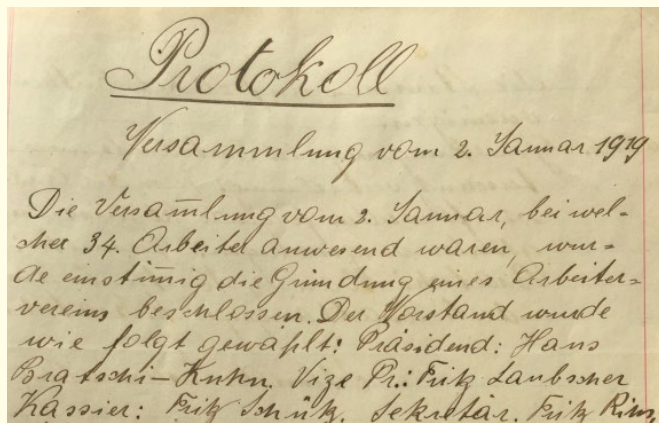 Protokoll
Versammlung vom 2. Januar 1919
Die Versam̄lung vom 2. Januar, bei wel-
cher 34. Arbeiter anwesend waren, wur-
de einstim̄ig die Gründung eines Arbeiter-
vereins beschlossen. Der Vorstand wurde
wie folgt gewählt: Präsidend: Hans
Bratschi-Kuhn. Vize Pr.: Fritz Laubscher
Kassier: Fritz Schütz. Sekretär. Fritz